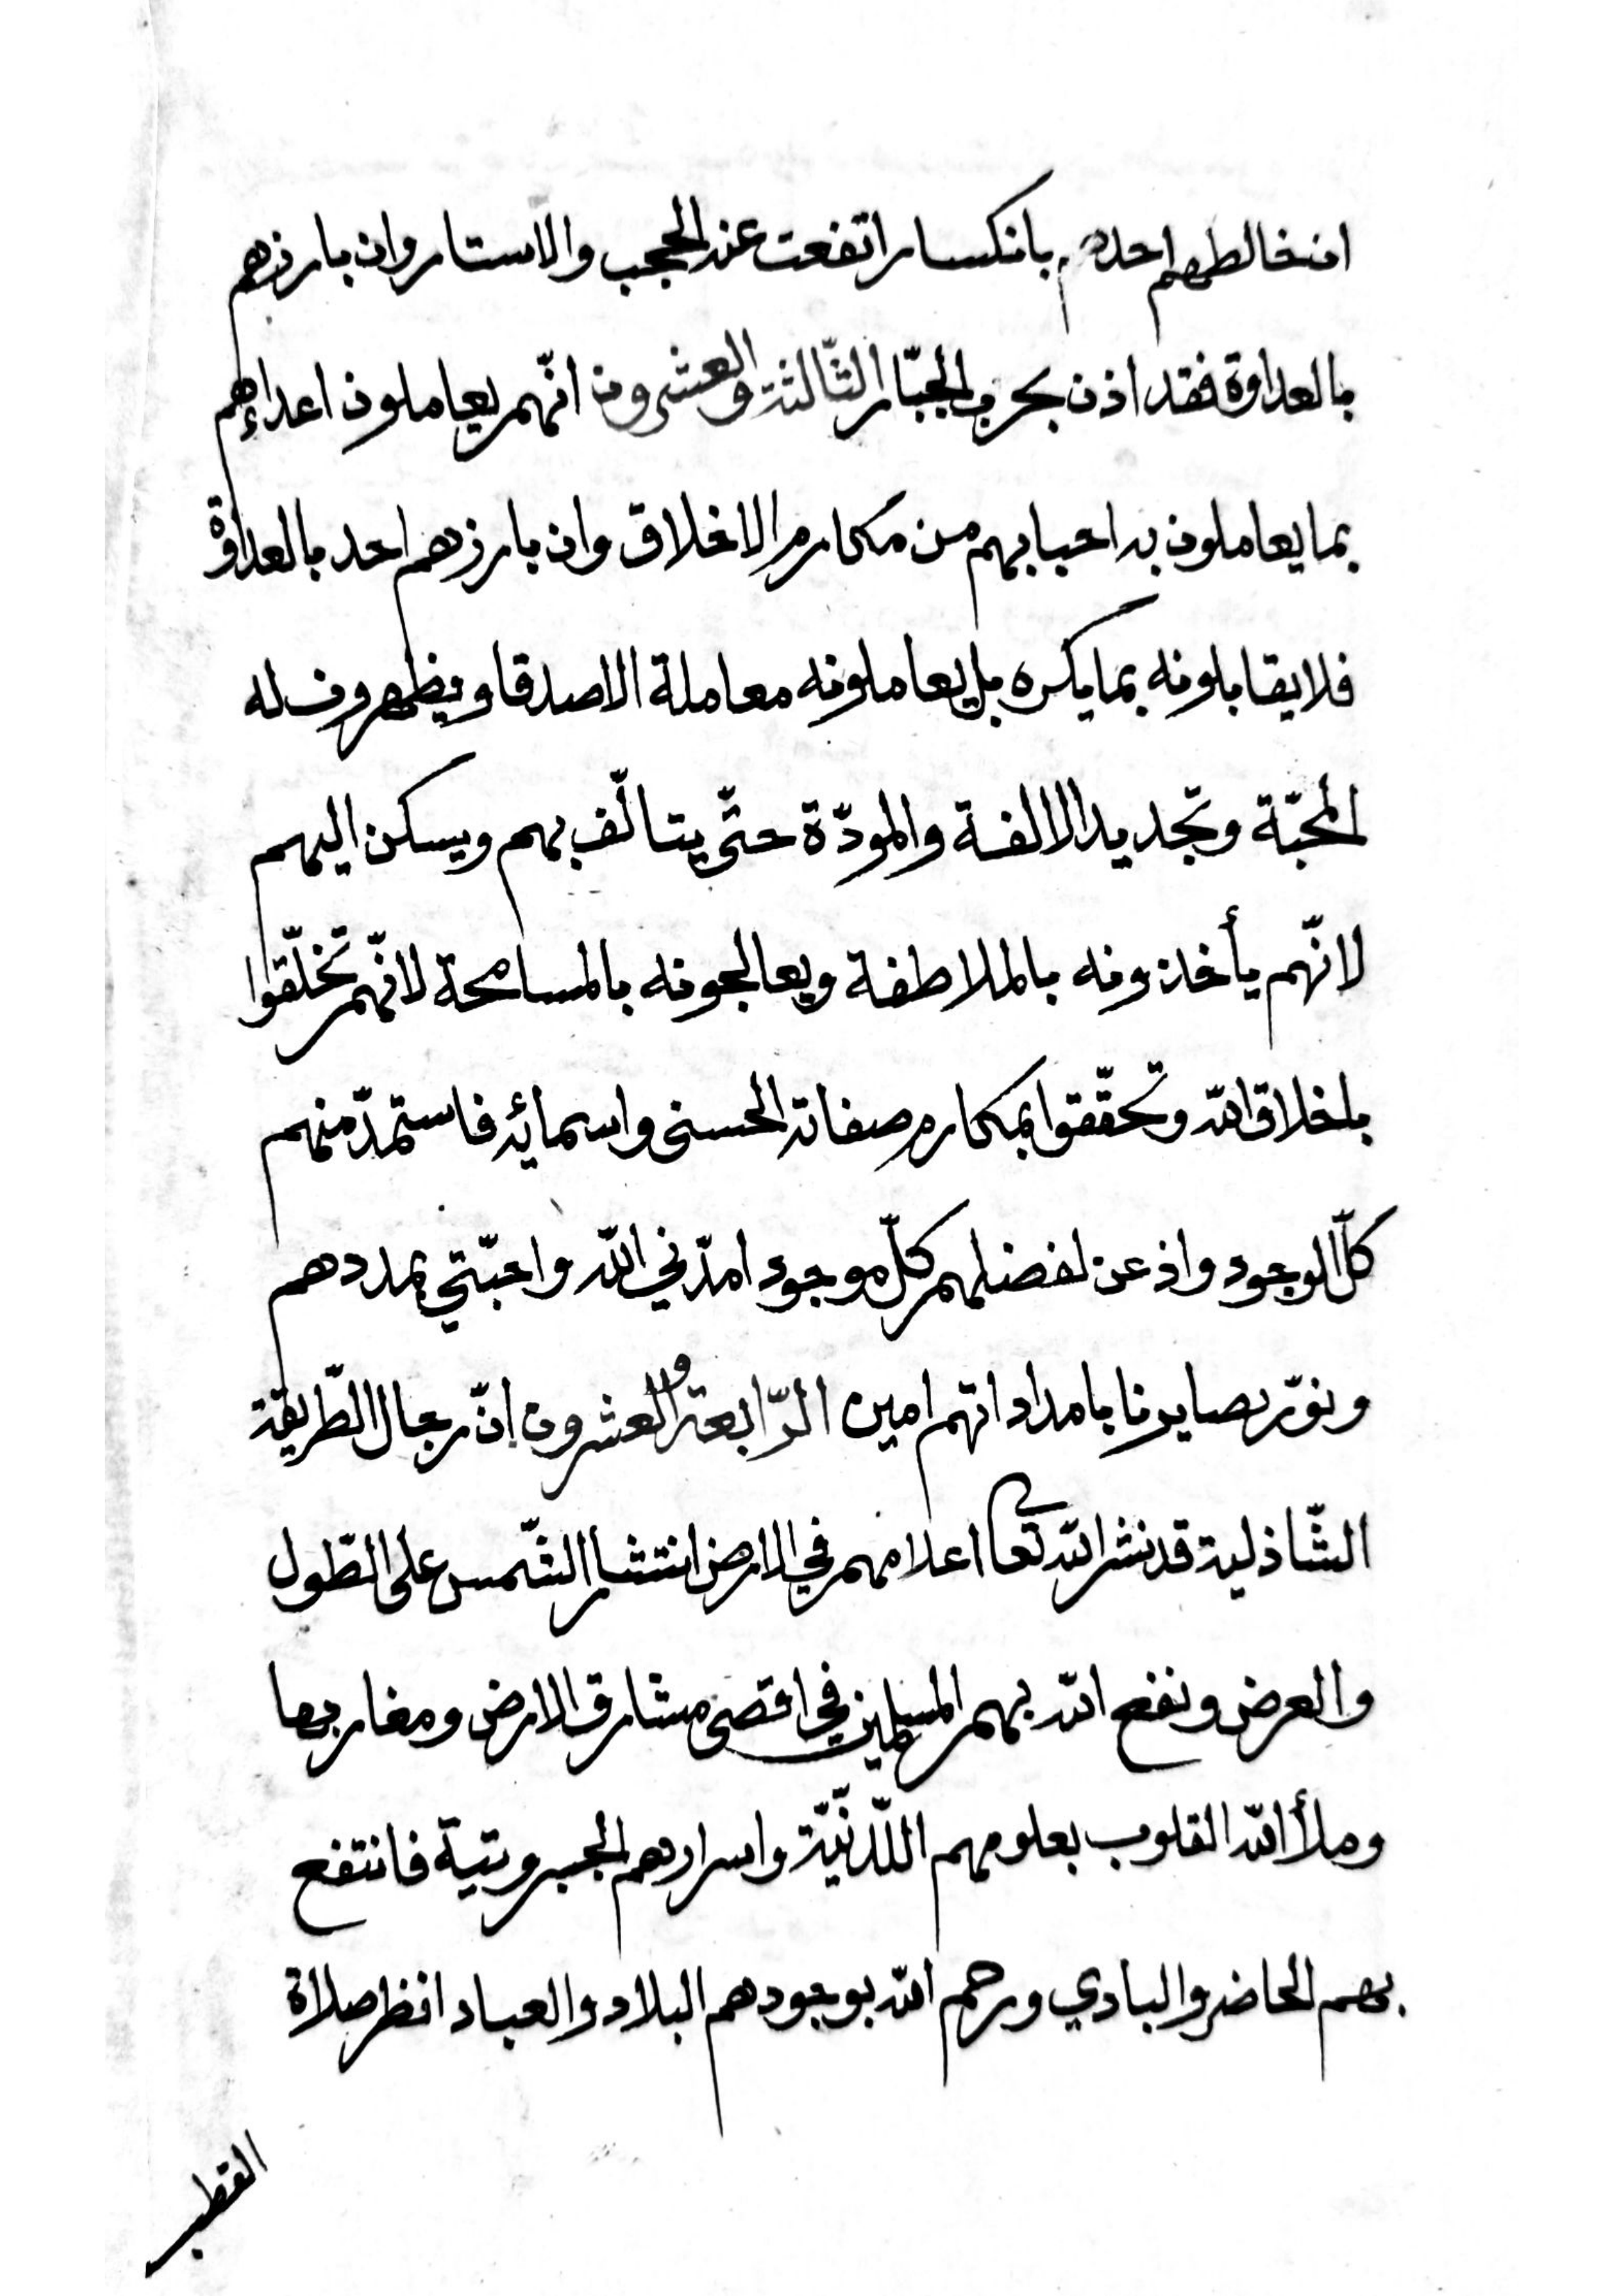 ان خالطهم احدهم بانكسار اتفعت عند الحجب والاستار وان بارزهم
بالعداوة فقد اذن بحرب الجبّار الثّالثة والعشرون انّهم يعاملون اعداءهم
بما يعاملون به احبابهم من مكارم الاخلاق وان بارزهم احد بالعداوة
فلا يقابلونه بما يكره بل يعاملونه معاملة الاصدقا ويظهرون له
المحبّة وتجديد الالفة والمودّة حتّى يتالّف بهم ويسكن اليهم
لانّهم يأخذونه بالملاطفة ويعالجونه بالمسامحة لانّهم تخلّقوا
باخلاق الله وتحقّقوا بمكارم صفاته الحسنى واسمائه فاستمدّ منهم
كلّ الوجود واذعن لفضلهم كلّ موجود امدّني الله واحبّتي بمددهم
ونوّر بصايرنا بامداداتهم امين الرّابعة والعشرون انّ رجال الطّريقة
الشّاذلية قد نشر الله تعا اعلامهم في الارض انتشار الشّمس على الطّول
والعرض ونفع الله بهم المسلمين في اقصى مشارق الارض ومغاربها
وملأ الله القلوب بعلومهم اللّدنّيّة واسرارهم الجبروتية فانتفع
بهم الحاضر والبادي ورحم الله بوجودهم البلاد والعباد انظر صلاة
القطب